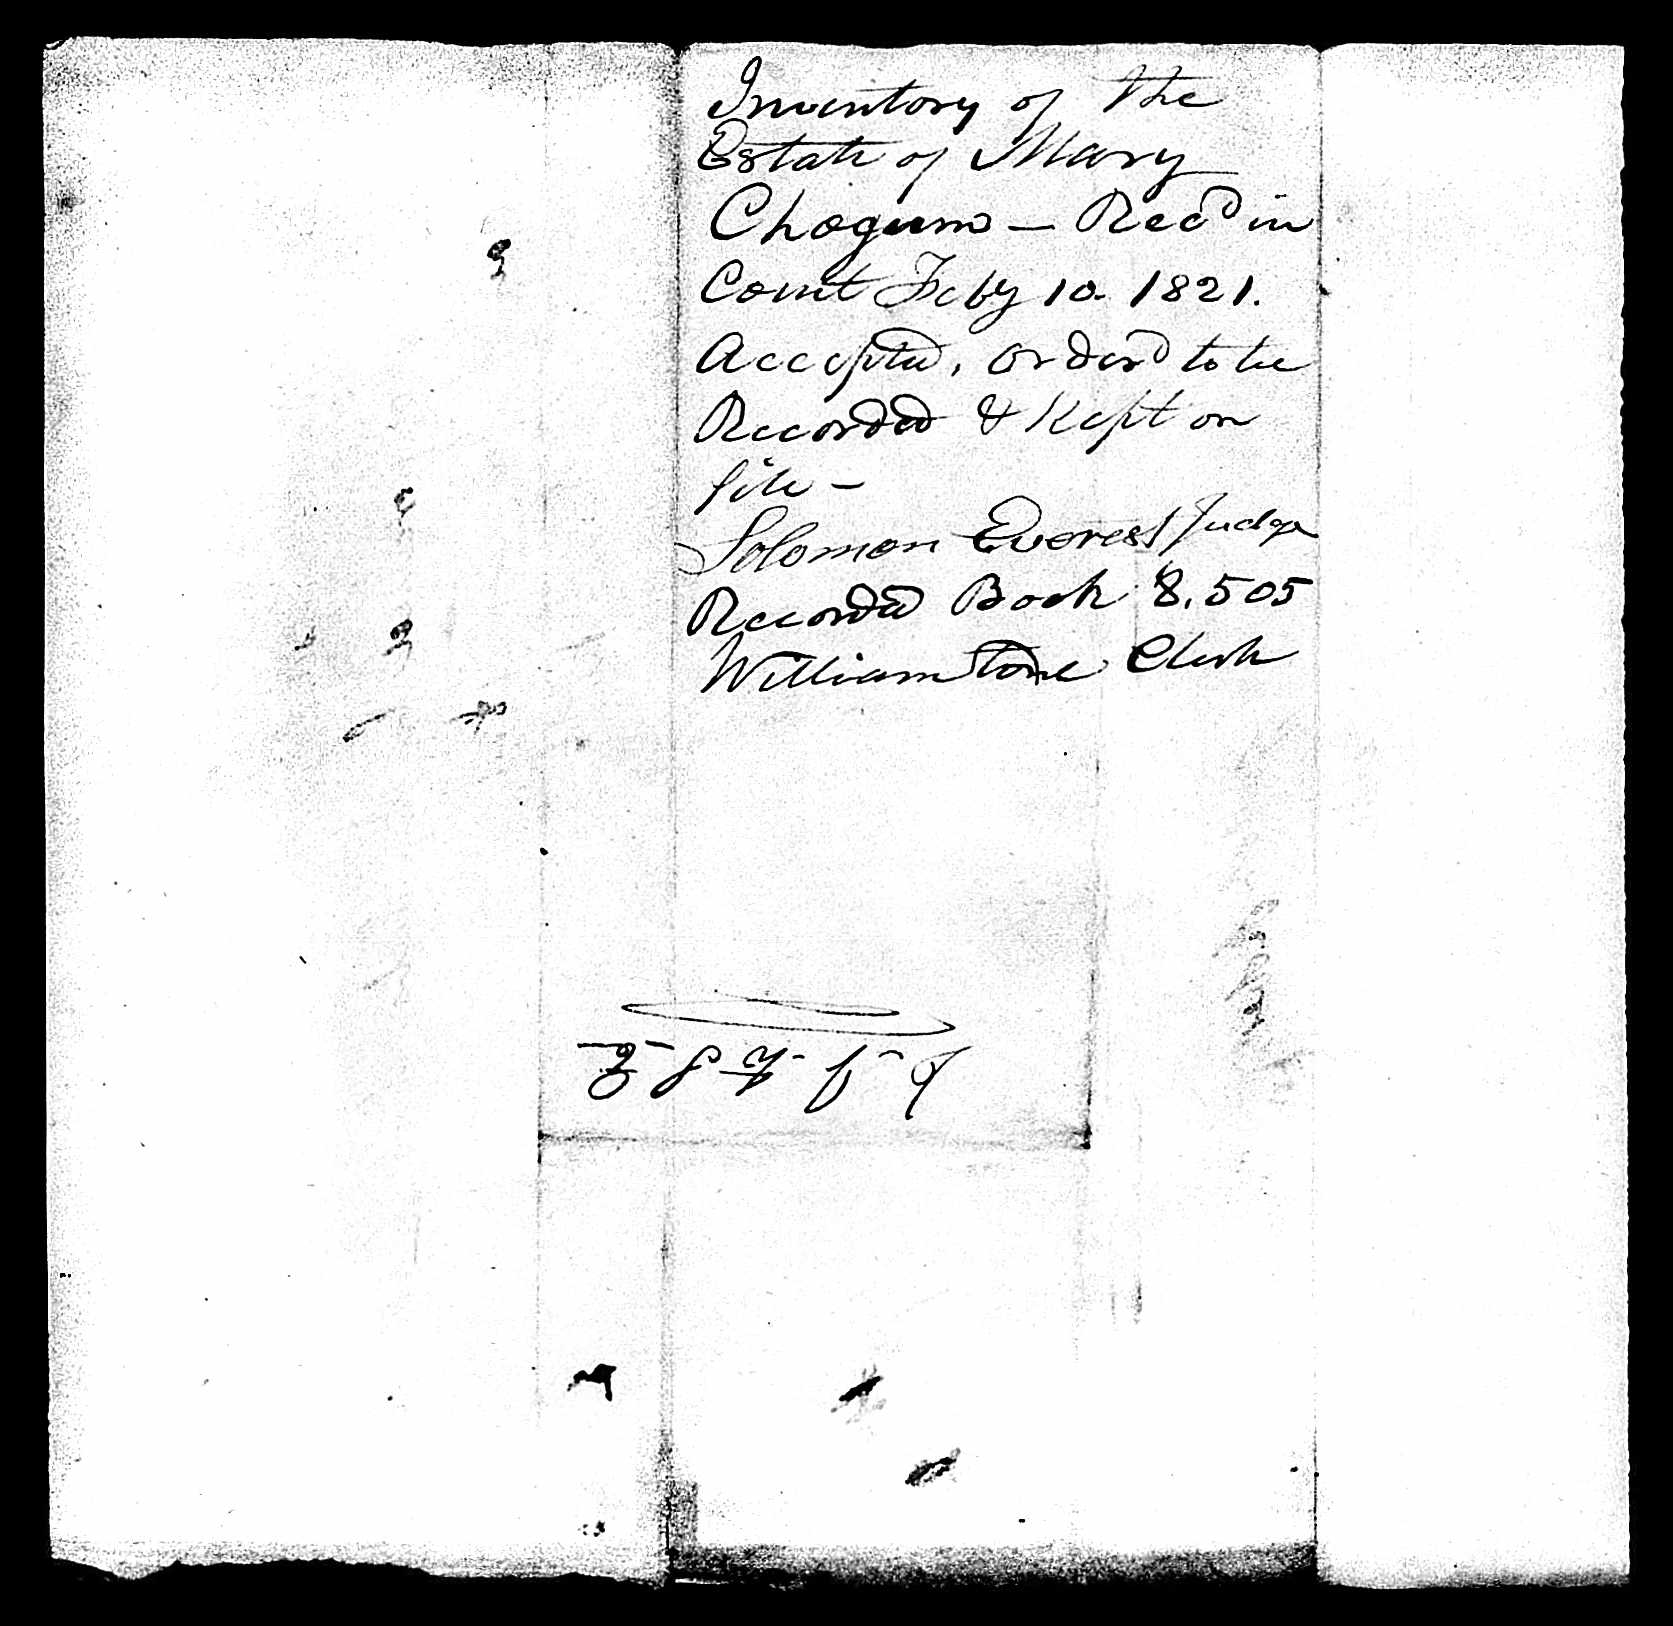 Inventory of the
Estate of Mary
Chogum — Recd in
Court Feby 10. 1821.
Accepted, Orderd to be
Recorded & Kept on
file —
Solomon Everest Judge
Recorded Book 8. 505
William Stone Clerk